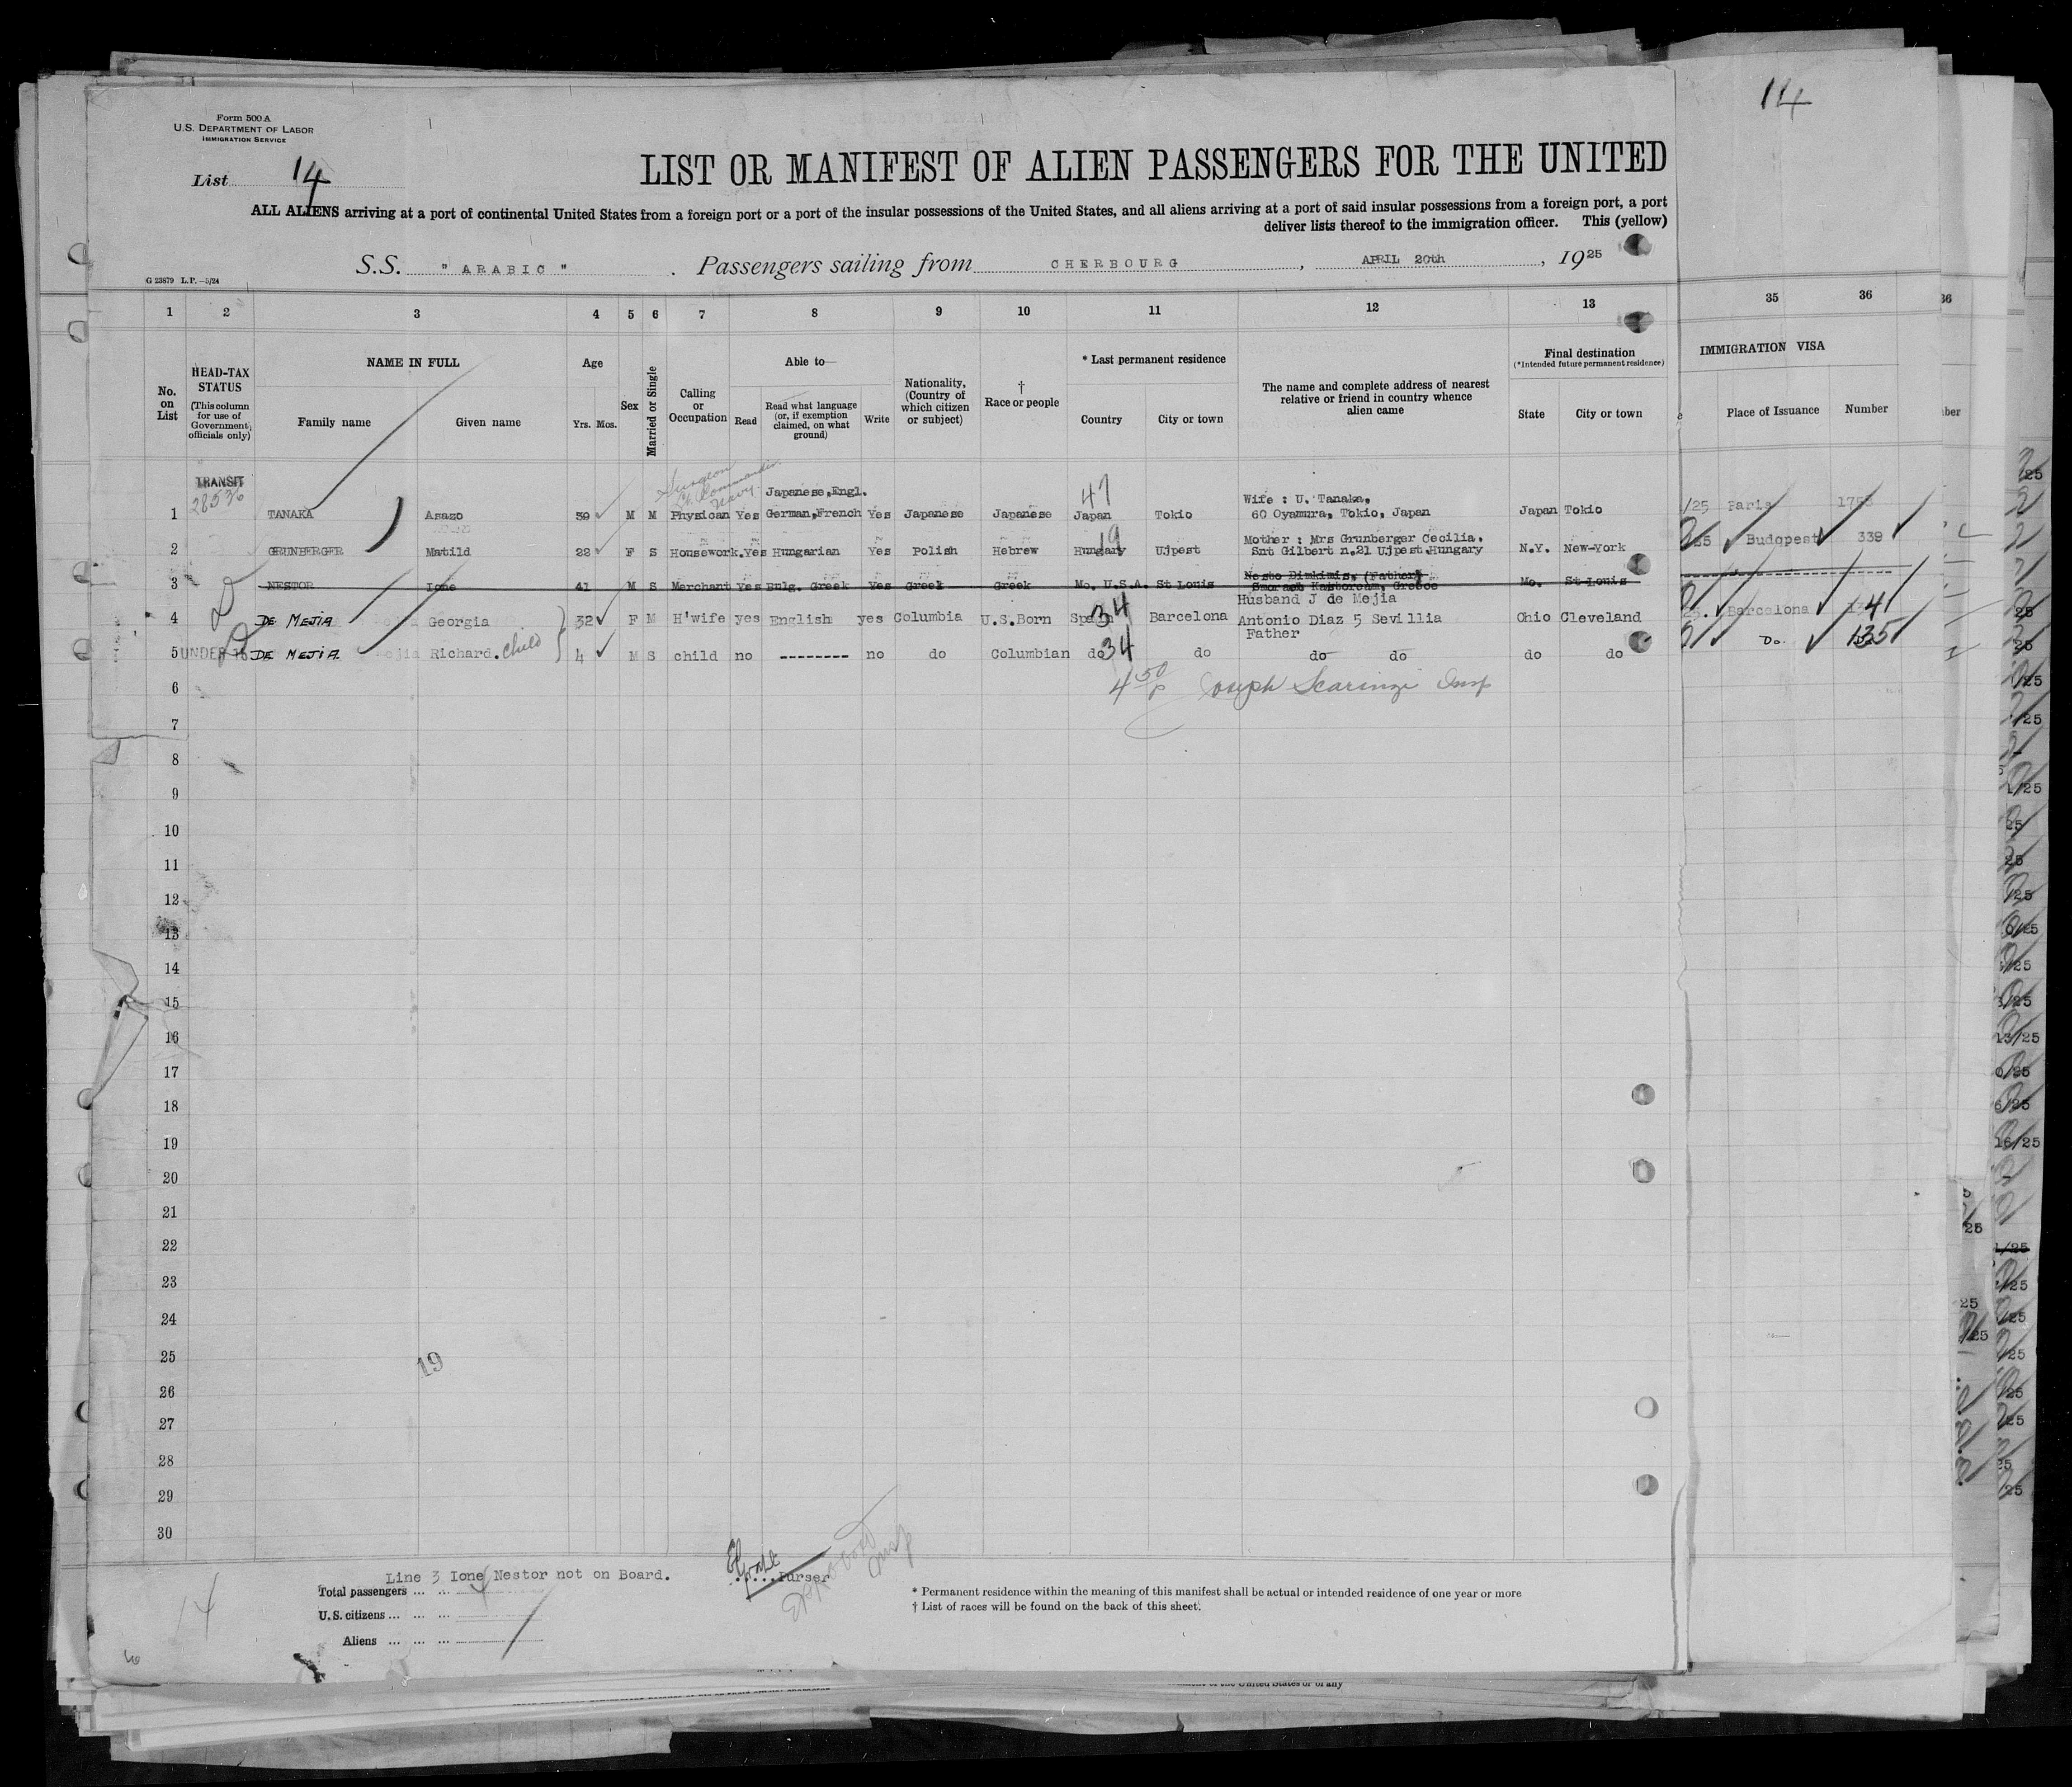 14
Form 500 A
U.S. DEPARTMENT OF LABOR
IMMIGRATION SERVICE
List 14
LIST OR MANIFEST OF ALIEN PASSENGERS FOR THE UNITED
ALL ALIENS arriving at a port of continental United States from a foreign port or a port of the insular possessions of the United States, and all aliens arriving at a port of said insular possessions from a foreign port, a port
deliver lists thereof to the immigration officer. This (yellow)
S.S. " ARABIC " . Passengers sailing from CHERBOURG, APRIL 20th, 1925
G 23879 L.P.—5/24
1 2 3 4 5 6 7 8 9 10 11 12 13 35 36
No. on List
HEAD-TAX STATUS (This column for use of Government officials only)
NAME IN FULL
Family name Given name
Age
Yrs. Mos.
Sex
Married or Single
Calling or Occupation
Able to—
Read
Read what language (or, if exemption claimed, on what ground)
Write
Nationality, (Country of which citizen or subject)
† Race or people
* Last permanent residence
Country City or town
The name and complete address of nearest relative or friend in country whence alien came
Final destination
(*Intended future permanent residence)
State City or town
IMMIGRATION VISA
Place of Issuance Number
TRANSIT
28536
Surgeon
Lt. Commander
Navy
Japanese,Engl. 47 Wife : U. Tanaka,
1 TANAKA Asazo 39 M M Physican Yes German,French Yes Japanese Japanese Japan Tokio 60 Oyamura, Tokio, Japan Japan Tokio /25 Paris
19 Mother : Mrs Grunberger Cecilia.
2 GRUNBERGER Matild 22 F S Housework. Yes Hungarian Yes Polish Hebrew Hungary Ujpest Snt Gilbert n.21 Ujpest Hungary N.Y. New-York Budapest 339
3 NESTOR Ione 41 M S Merchant Yes Eulg. Greek Yes Greek Greek Mo. U.S.A. St Louis Mo. St Louis
34 Husband J de Mejia
4 DE MEJIA Georgia 32 F M H'wife yes English yes Columbia U.S.Born Spain Barcelona Antonio Diaz 5 Sevillia Ohio Cleveland Barcelona 134
Father
5 UNDER 16 DE MEJIA Richard. child 4 M S child no -------- no do Columbian do 34 do do do do do Do. 135
6
4 50 P Joseph Scaringi Insp
7
8
9
10
11
12
13
14
15
16
17
18
19
20
21
22
23
24
25
19
26
27
28
29
30
Line 3 Ione Nestor not on Board.
Purser
Insp
Total passengers ... ... 4
U.S. citizens ... ... ...
Aliens ... ... ...
14
* Permanent residence within the meaning of this manifest shall be actual or intended residence of one year or more
† List of races will be found on the back of this sheet.